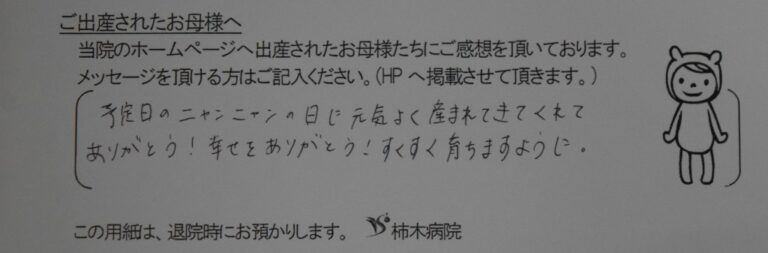 ご出産されたお母様へ
当院のホームページへ出産されたお母様たちにご感想を頂いております。
メッセージを頂ける方はご記入ください。(HPへ掲載させて頂きます。)
予定日のニャンニャンの日に元気よく産まれてきてくれて
ありがとう!幸せをありがとう!すくすく育ちますように。
この用紙は、退院時にお預かりします。 柿木病院